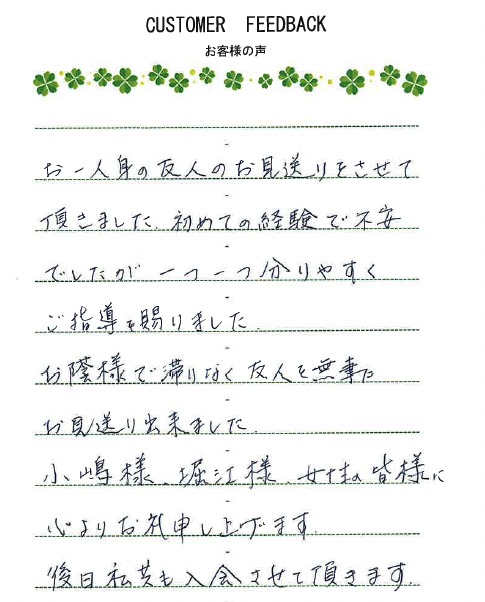 CUSTOMER FEEDBACK
お客様の声
お一人身の友人のお見送りをさせて
頂きました。初めての経験で不安
でしたが一つ一つ分りやすく
ご指導を賜りました。
お蔭様で滞りなく友人を無事に
お見送り出来ました。
小嶋様、堀江様、女性の皆様に
心よりお礼申し上げます。
後日私共も入会させて頂きます。